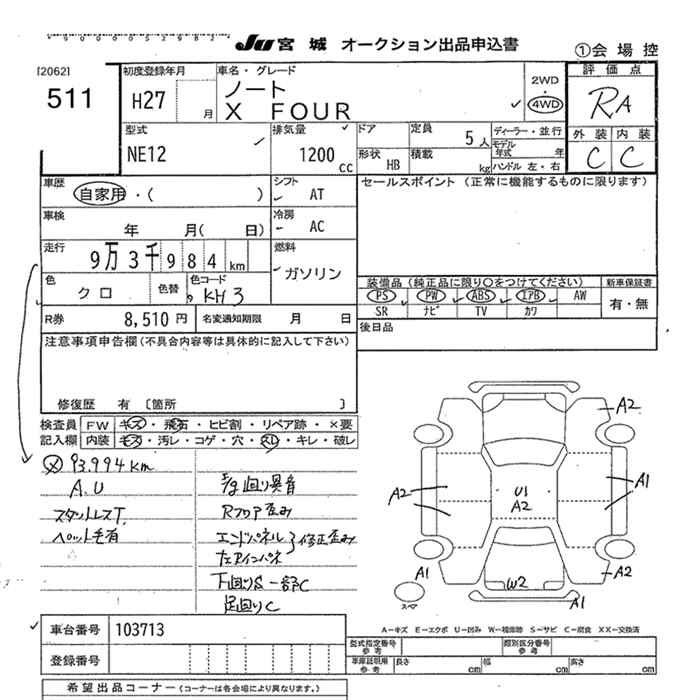 JU 宮城 オークション出品申込書
①会場控
[2062]
511
初度登録年月
H27 月
車名・グレード
ノート
X FOUR
2WD
・
4WD
評価点
RA
外装 内装
C C
型式
NE12
排気量
1200 cc
ドア
形状 HB
定員
5人
積載 kg
ディーラー・並行
モデル年式 年
ハンドル 左・右
車歴
自家用・( )
シフト
AT
セールスポイント (正常に機能するものに限ります)
車検
年 月( 日)
冷房
AC
走行
9万3千984km
燃料
ガソリン
色
クロ
色替
色コード
KH3
装備品 (純正品に限り○をつけてください)
新車保証書
PS PW ABS エアB AW
有・無
SR ナビ TV カワ
R券 8,510円
名変通知期限 月 日
後日品
注意事項申告欄(不具合内容等は具体的に記入して下さい)
修復歴 有 〔箇所 〕
検査員記入欄
FW キズ・飛石・ヒビ割・リペア跡・×要
内装 キズ・汚レ・コゲ・穴・スレ・キレ・破レ
93,994km
A.U
スタットレスT.
ペット毛有
E/g回り異音
Rフロア歪み
エンドパネル
左Rインパネ
修正歪み
下回りS 一部C
足回りC
A2
A2
A1
U1
A2
A1
W2
A2
A1
スペア
A－キズ E－エクボ U－凹み W－補修跡 S－サビ C－腐食 XX－交換済
車台番号 103713
登録番号
型式指定番号 参考
類別区分番号 参考
車庫証明用 参考
長さ cm
幅 cm
高さ cm
希望出品コーナー(コーナーは各会場により異なります。)